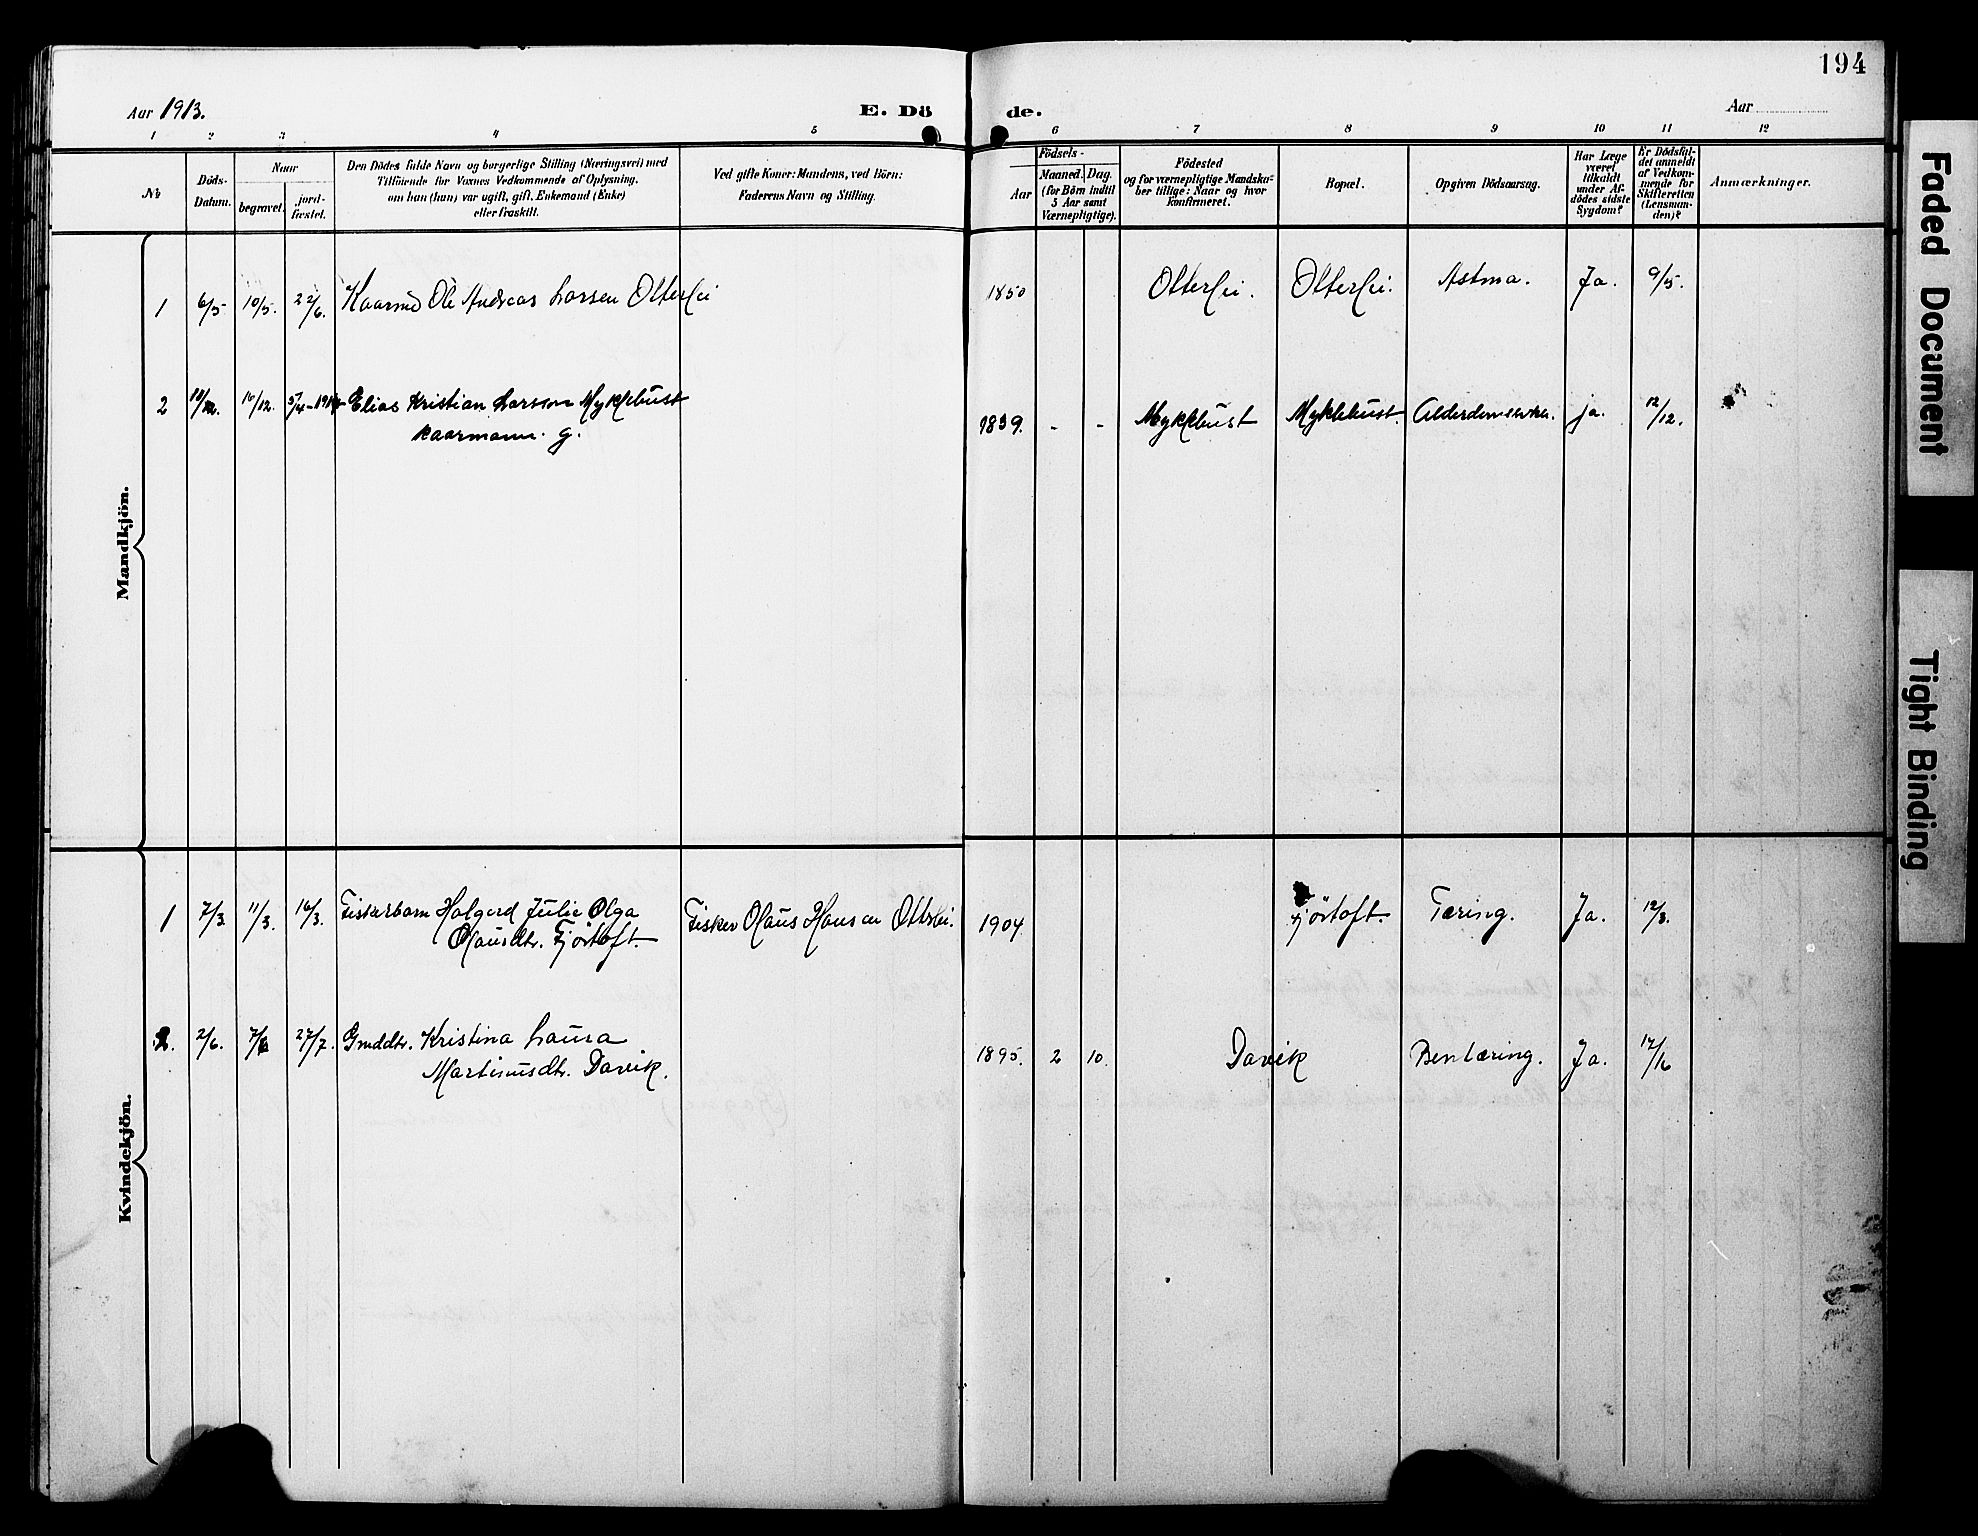 194
Aar 1913.
E. Dö de.
Aar
1 2 3 4 5 6 7 8 9 10 11 12
№
Döds-
Datum.
Naar
begravet.
jord-
fæstet.
Den Dödes fulde Navn og borgerlige Stilling (Næringsvei) med
Tilföiende for Voxnes Vedkommende af Oplysning,
om han (hun) var ugift, gift, Enkemand (Enke)
eller fraskilt.
Ved gifte Koner: Mandens, ved Börn:
Faderens Navn og Stilling.
Födsels-
Aar
Maaned. Dag.
(for Börn indtil
5 Aar samt
Værnepligtige).
Födested
og for værnepligtige Mandska-
ber tillige: Naar og hvor
konfirmeret.
Bopæl.
Opgiven Dödsaarsag.
Har Læge
været
tilkaldt
under Af-
dödes sidste
Sygdom?
Er Dödsfal-
det anmeldt
af Vedkom-
mende for
Skifteretten
(Lensman-
den)?
Anmærkninger.
Mandkjön.
1 6/5 10/5. 22/6. Kaarmd Ole Andreas Larsen Otterlei 1850 Otterlei. Otterlei. Astma. Ja. 9/5.
2 16/12. 5/4-1914 Elias Kristian Larsson Myklebust 1839. - - Myklebust Myklebust. ja. 12/12.
kaarmann. g.
Kvindekjön.
1 7/3 11/3. 16/3. Fiskerbarn Holgerd Julie Olga Fisker Olaus Hansen Otterlei. 1904 Fjörtoft. Tæring. Ja. 12/3.
Olausdtr. Fjörtoft.
2. 2/6. 7/6 27/7. Grmddtr. Kristina Laura 1895. 2 10. Davik Bentæring. Ja.
Martinusdtr. Davik.
Faded Document
Tight Binding